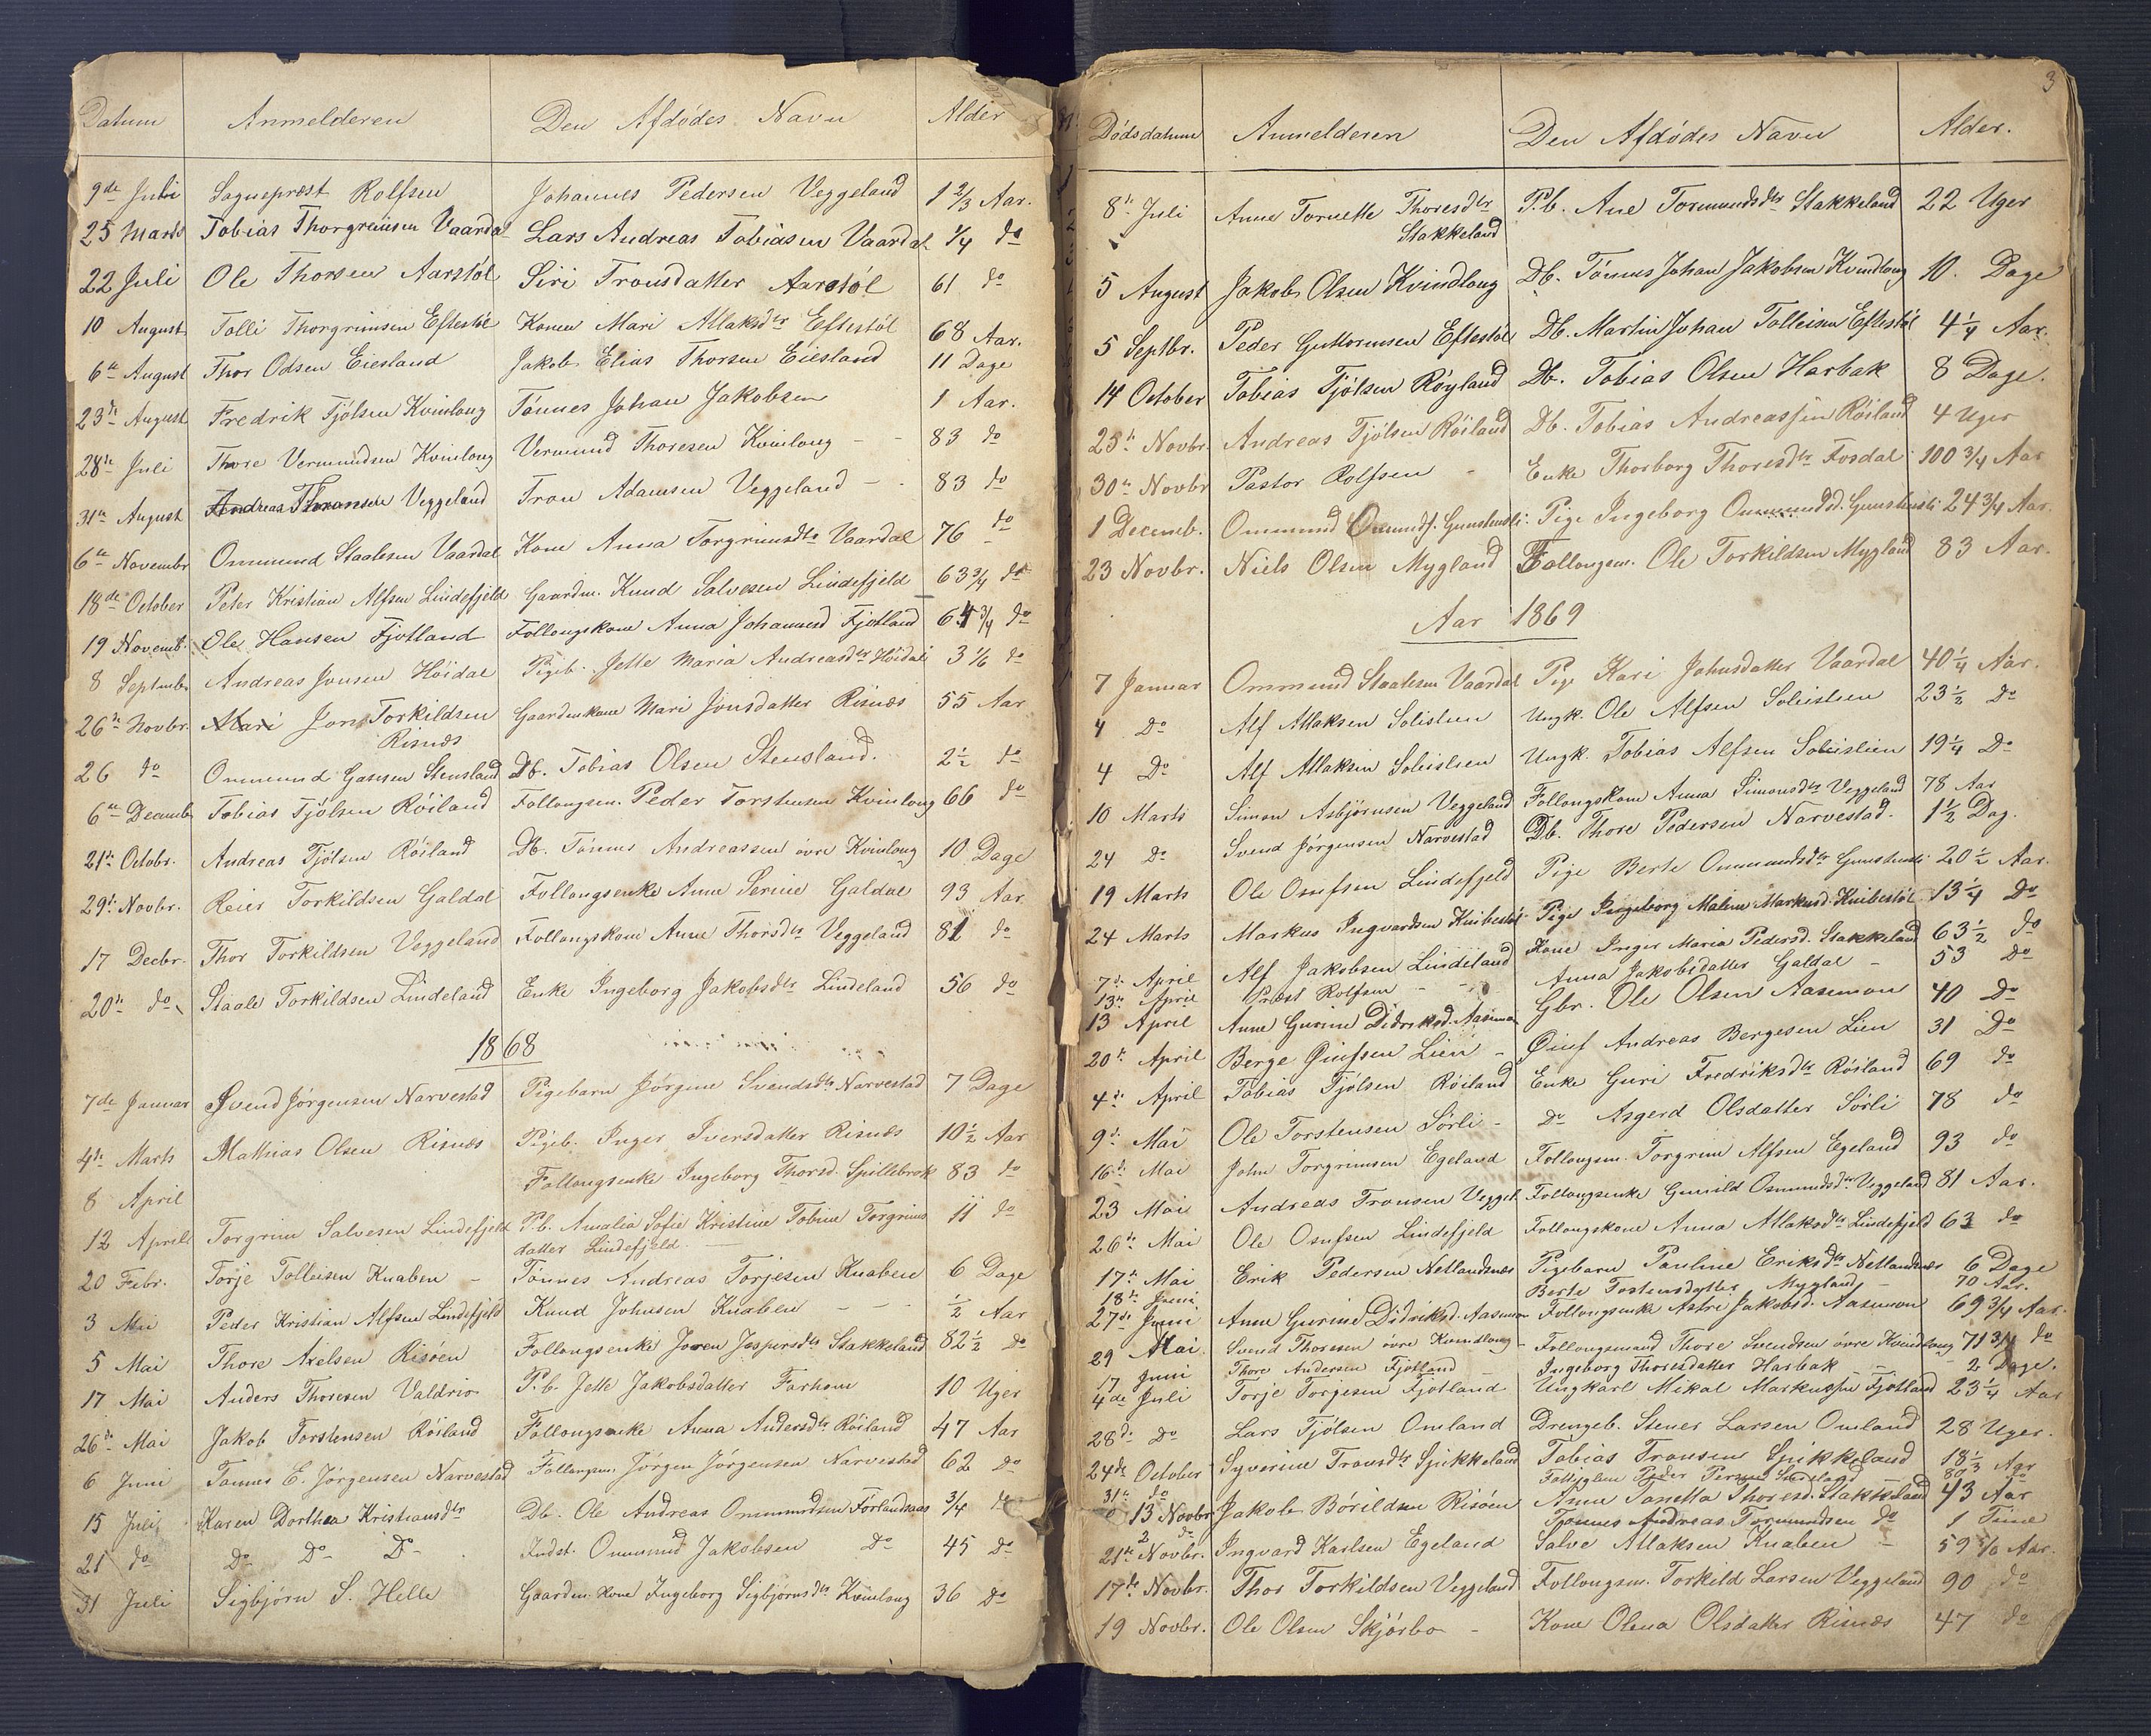 Datum Anmelderen Den Afdödes Navn Alder
9de Juli Sognepræst Rolfsen Johannes Pedersen Veggeland 1 2/3 Aar.
25 Marts Tobias Thorgreinsen Vaardal Lars Andreas Tobiasen Vaardal 1/4 do
22 Juli Ole Thorsen Aarstöl Siri Tronsdatter Aarstöl 61 do
10 August Tolli Thorgrimsen Eftestöl Konen Mari Atlaksdtr Eftestöl 68 Aar.
6te August Thor Odsen Eiesland Jakob Elias Thorsen Eiesland 11 Dage
23de August Fredrik Tjölsen Kvinlong Tönnes Johan Jakobsen 1 Aar.
28de Juli Thore Vermundsen Kvinlong Vermund Thoresen Kvinlong - - 83 do
31te August Andreas Thronsen Veggeland Tron Adamsen Veggeland - - 83 do
6te Novembr Ommund Staalesen Vaardal Kone Anna Torgrimsdtr Vaardal 76 do
18de October Peter Kristian Alfsen Lindefjeld Gaardm. Knud Salvesen Lindefjeld 63 3/4 do
19 Novemb. Ole Hansen Fjotland Follougskone Anna Johannesd Fjotland 64 3/4 do
8 Septmbr Andreas Jonsen Höidal Pigeb. Jette Maria Andreasdtr Höidal 3 1/6 do
26de Novbr. Mari Jon Torkildsen Gaardmkone Mari Jonsdatter Risnæs 55 Aar
Risnæs
26 do Ommund Gasesen Stensland Db. Tobias Olsen Stensland. 2 1/2 do
6te Decemb Tobias Tjölsen Röiland Follougsm. Peder Torstensen Kvinlong 66 do
21de Octobr. Andreas Tjölsen Röiland Db. Tönnes Andreassen övre Kvinlong 10 Dage
29de Novbr. Reier Torkildsen Galdal Follougsenke Anne Serine Galdal 93 Aar
17 Decbr. Thor Torkildsen Veggeland Follougskone Anne Thorsdtr Veggeland 81 do
20de do Staale Torkildsen Lindeland Enke Ingeborg Jakobsdtr Lindeland 56 do
1868
7de Januar Svend Jörgensen Narvestad Pigebarn Jörgine Svendsdtr Narvestad 7 Dage
4de Marts Mathias Olsen Risnæs Pigeb. Inger Iversdatter Risnæs 10 1/2 Aar
8 April Follougsenke Ingeborg Thorsd. Spillebrok 83 do
12 April Torgrim Salvesen Lindefjeld P.b. Amalia Sofie Kristine Tobine Torgrims 11 do
datter Lindefjeld
20 Febr. Torje Tolleisen Knaben - Tönnes Andreas Torjesen Knaben 6 Dage
3 Mai Peder Kristian Alfsen Lindefjeld Knud Johnsen Knaben - - - 1/2 Aar
5 Mai Thore Axelsen Risöen Follougsenke Joren Jespersdtr Stakkeland 82 1/2 do
17 Mai Anders Thoresen Valdrio P.b. Jette Jakobsdatter Farhom 10 Uger
26de Mai Jakob Torstensen Röiland Follougsenke Anna Andersdtr Röiland 47 Aar
6 Juni Tønnes E. Jörgensen Narvestad Follougsm. Jörgen Jörgensen Narvestad 62 do
15 Juli Karen Dorthea Kristiansdtr Db. Ole Andreas Ommundsen Förlandsaas 3/4 do
21 do Do Do Do Indst. Ommund Jakobsen Do 45 do
31 Juli Sigbjörn S. Helle Gaardm. Kone Ingeborg Sigbjörnsdtr Kvinlong 36 do
3
Dödsdatum Anmelderen Den Afdödes Navn Alder.
8de Juli Anne Tornette Thoresdtr P.b. Ane Tormundsdtr Stakkeland 22 Uger
Stakkeland
5 August Jakob Olsen Kvindlong Db. Tönnes Johan Jakobsen Kvindlong 10. Dage
5 Septbr. Peder Guttormsen Eftestöl Db. Martin Johan Tolleisen Eftestöl 4 1/4 Aar.
14 October Tobias Tjölsen Röyland Db. Tobias Olsen Harbak 8 Dage.
25de Novbr. Andreas Tjölsen Röiland Db. Tobias Andreassen Röiland 4 Uger
30te Novbr Pastor Rolfsen - Enke Thorborg Thoresdtr Fosdal 100 3/4 Aar
1 Decemb. Ommund Omunds. Pige Ingeborg Ommundsd. 24 3/4 Aar.
23 Novbr. Niels Olsen Mygland Follougsm. Ole Torkildsen Mygland 83 Aar.
Aar 1869
7 Januar Ommund Staalesen Vaardal Pige Kari Johnsdatter Vaardal 40 1/4 Aar.
4 Do Alf Atlaksen Solislien Ungk. Ole Alfsen Soleislien 23 1/2 Do
4 Do Alf Atlaksen Soleislien Ungk. Tobias Alfsen Soleislien 19 1/4 Do
10 Marts Simon Asbjörnsen Veggeland Follougskone Anna Simonsdtr Veggeland 78 Aar
24 Do Svend Jörgensen Narvestad Db. Thore Pedersen Narvestad. 1 1/2 Dag.
19 Marts Ole Osufsen Lindefjeld Pige Berte Ommundsdtr 20 1/2 Aar.
24 Marts Markus Ingvardsen Knibestöl Pige Ingeborg Malene Markusd. Knibestöl 13 1/4 Do
7de April Alf Jakobsen Lindeland Kone Inger Maria Pedersd. Stakkeland 63 1/2 do
13de April Præst Rolfsen - - Anna Jakobsdatter Galdal - 53 Do
13 April Anne Gurine Didriksd. Aasmon Gbr. Ole Olsen Aasemon 40 Do
20de April Berge Qiufsen Lien - Qiuf Andreas Bergesen Lien 31 Do
4de April Tobias Tjölsen Röiland Enke Guri Fredriksdtr Röiland 69 do
9de Mai Ole Torstensen Sörli - Do Asgerd Olsdatter Sörli 78 do
16de Mai John Torgrimsen Egeland Follougsm. Torgrim Alfsen Egeland 93 do
23 Mai Andreas Tronsen Veggel. Follougsenke Gunild Osmundsdtr Veggeland 81 Aar.
26de Mai Ole Osufsen Lindefjeld Follougskone Anna Atlaksdtr Lindefjeld 63 do
17de Mai Erik Pedersen Netlandsnæs Pigebarn Pauline Eriksdtr Netlandsnæs 6 Dage
18de Juni Berte Tostensdatter Mygland - 70 Aar.
27de Juni Anne Gurine Didriksd. Aasmon Follougsenke Astri Jakobsd. Aasemon 69 3/4 Aar.
29 Mai. Svend Thoresen övre Kvindlong - Follougsmand Thore Svendsen övre Kvindlong 71 3/4 do
17 Juni Thore Andersen Fjotland Ingeborg Thoresdatter Harbak - 2 Dage.
4de Juli Torje Torjesen Fjotland Ungkarl Mikal Markussen Fjotland 23 1/4 Aar
28de Do Lars Tjölsen Omland Drengeb. Stener Larsen Omland 28 Uger.
24de October Syverine Tronsdtr Spikkeland Tobias Tronsen Spikkeland 18 1/3 Aar
31te do Peder 80 do
13 Novbr Jakob Börildsen Risöen Anne Tanetta Thoresd. Stakkeland 43 Aar
2 do Tönnes Andreas Tormundsen do 1 Time
21de Novbr. Ingvard Karlsen Egeland Salve Atlaksen Knaben - 59 Aar.
17de Novbr. Thor Torkildsen Veggeland Follougsm. Torkild Larsen Veggeland 90 do
19 Novbr. Ole Olsen Skjörbo - Kone Olena Olsdatter Risnæs 47 do